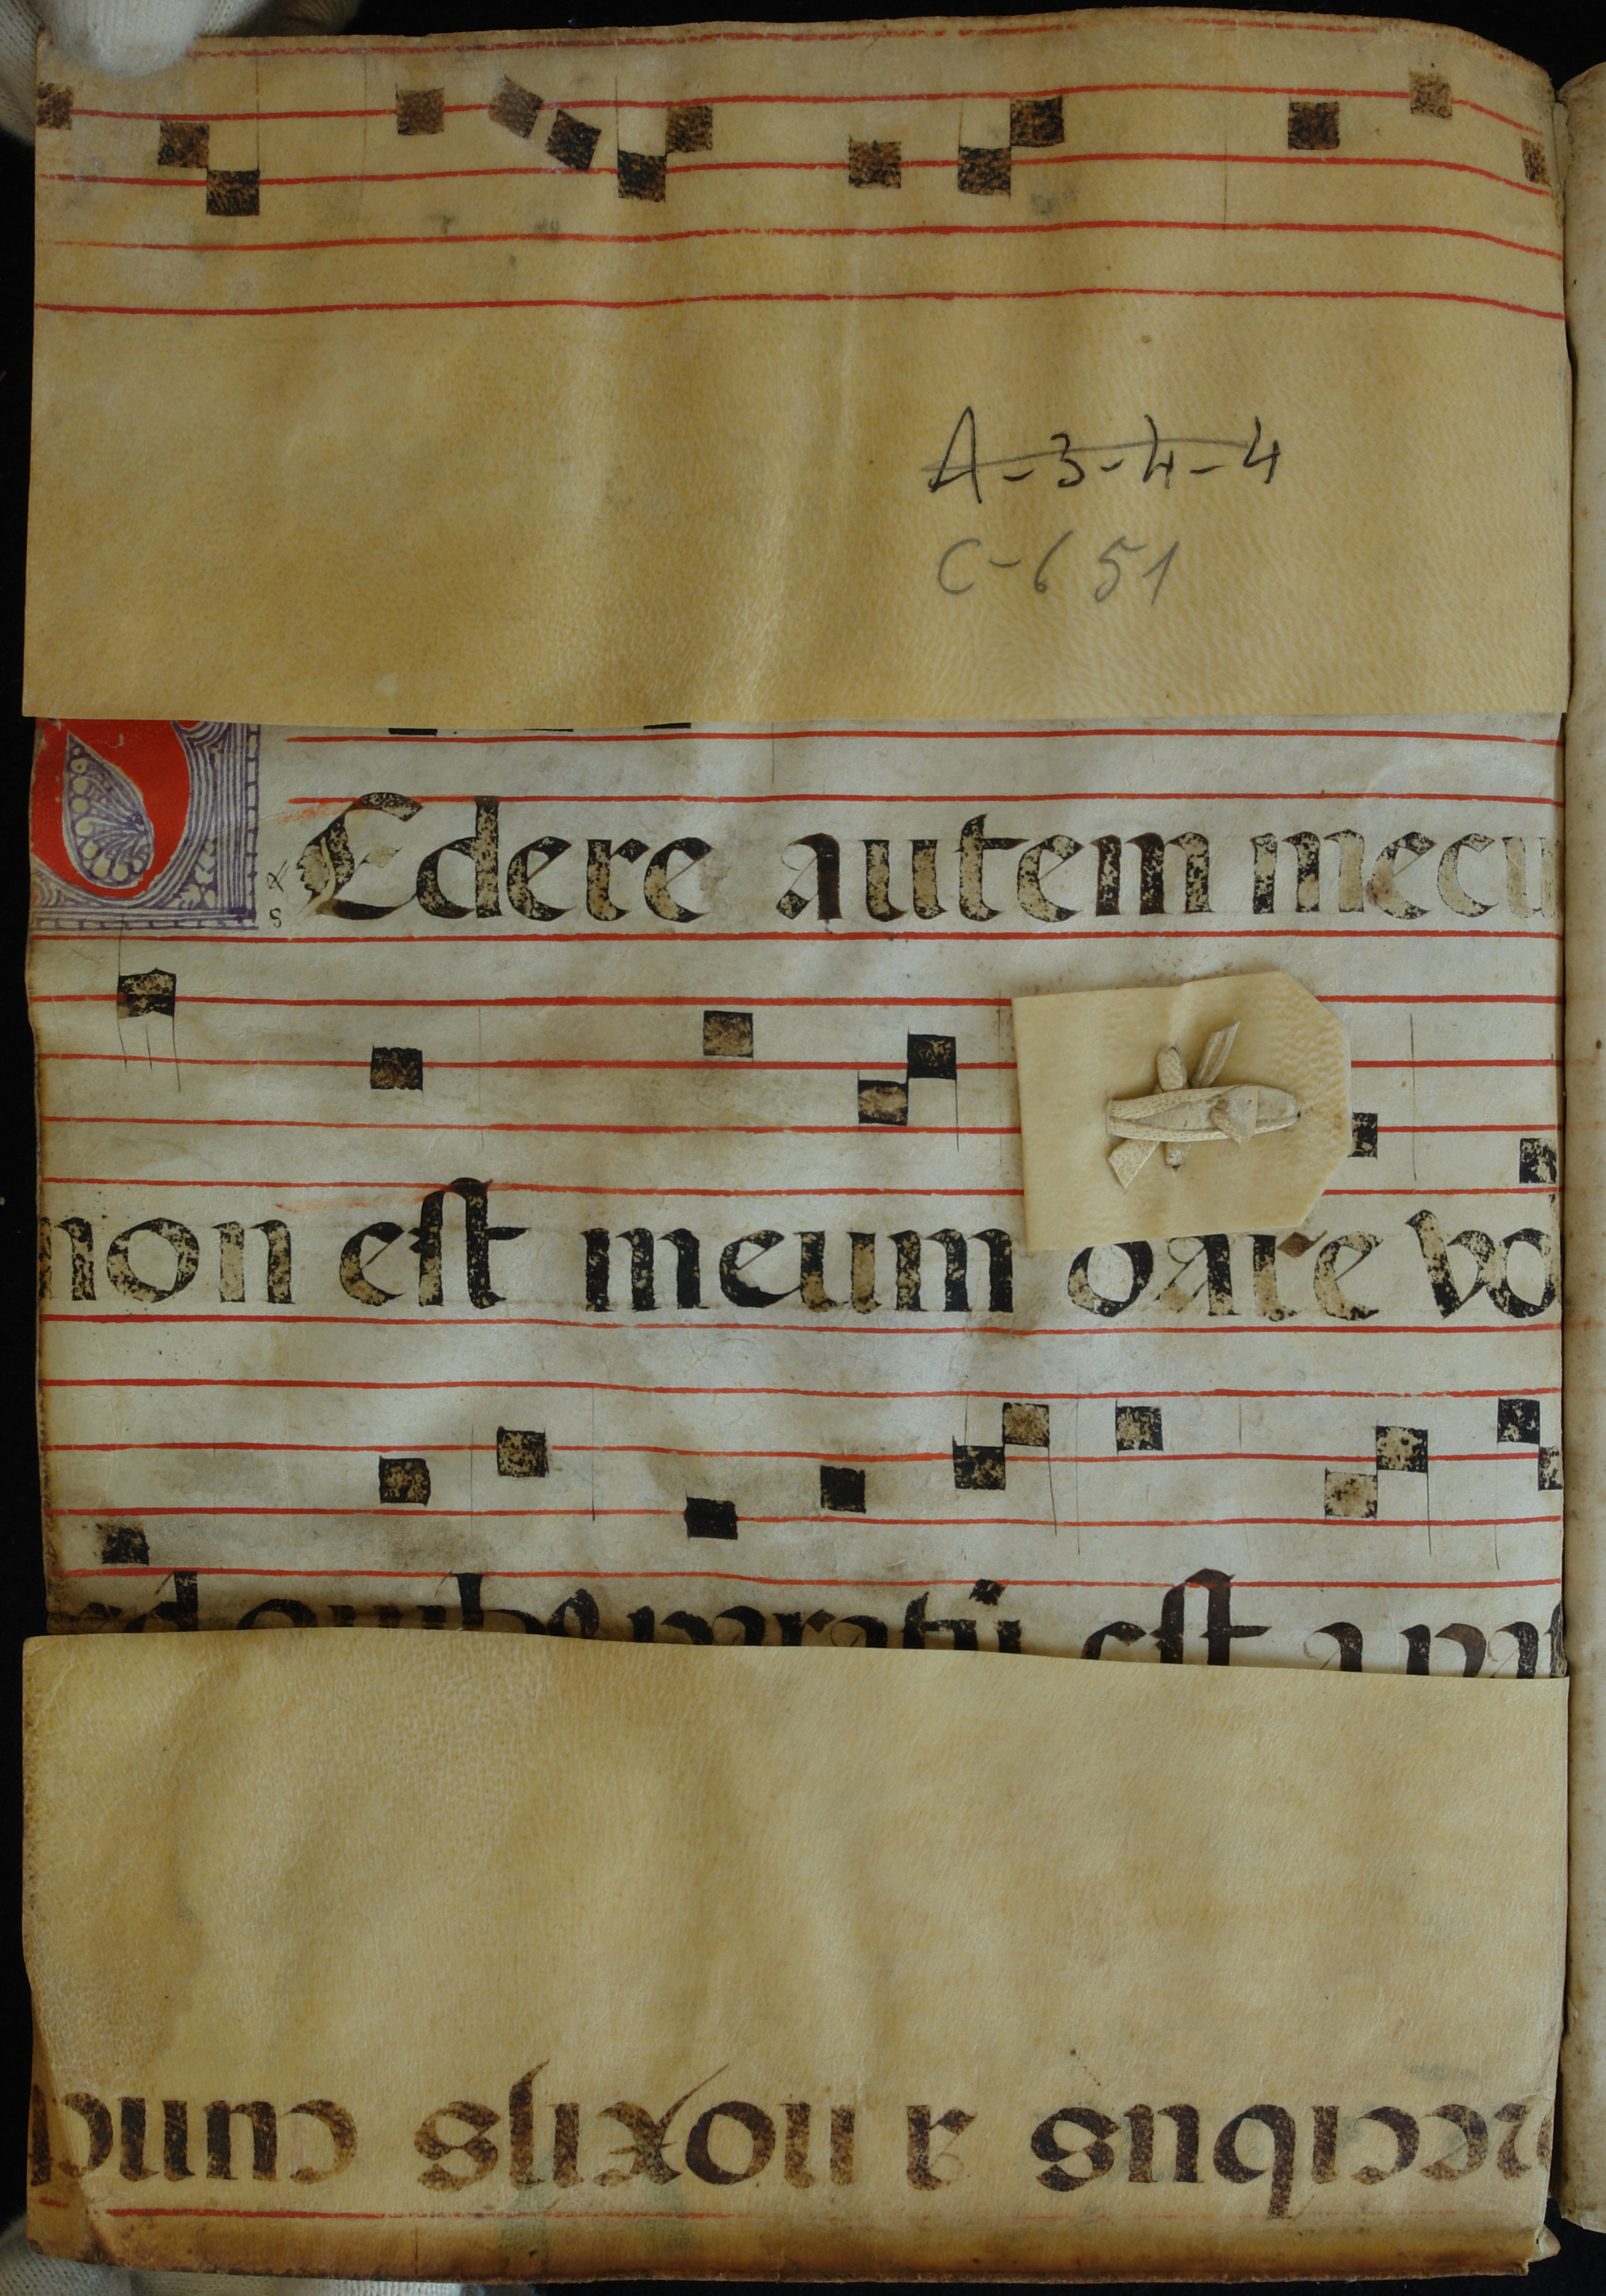 A-3-4-4
C-651
Edere autem mecu
non est meum dare vo
paratū est a
recibus a noxijs cunc